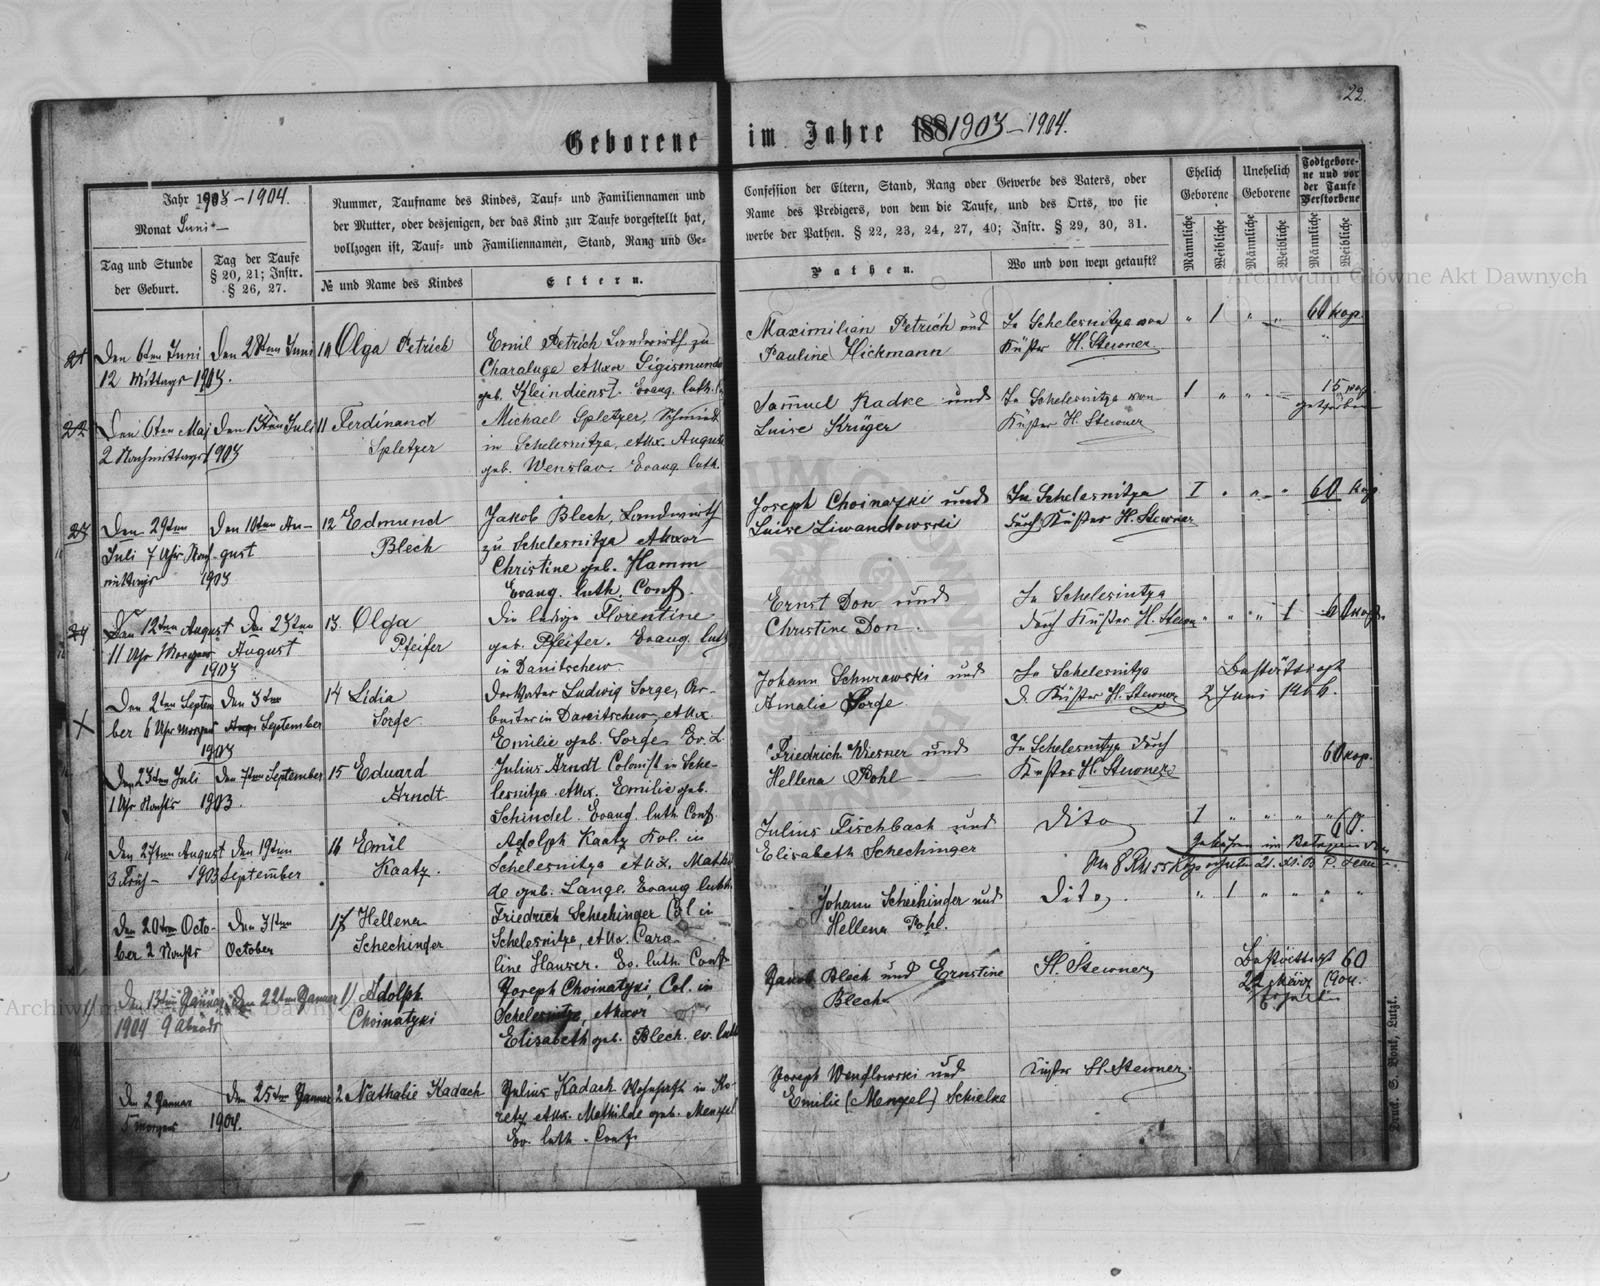 22.
Geborene im Jahre 188 1903–1904.
Jahr 1903–1904.
Monat Juni
Tag und Stunde
der Geburt.
Tag der Taufe
§ 20, 21; Instr.
§ 26, 27.
Nummer, Taufname des Kindes, Tauf- und Familiennamen und
der Mutter, oder desjenigen, der das Kind zur Taufe vorgestellt hat,
vollzogen ist, Tauf- und Familiennamen, Stand, Rang und Ge-
№ und Name des Kindes
Eltern.
Confession der Eltern, Stand, Rang oder Gewerbe des Vaters, oder
Name des Predigers, von dem die Taufe, und des Orts, wo sie
werbe der Pathen. § 22, 23, 24, 27, 40; Instr. § 29, 30, 31.
Pathen.
Wo und von wem getauft?
Ehelich
Geborene
Unehelich
Geborene
Todtgebore-
ne und vor
der Taufe
Verstorbene
Männliche
Weibliche
Männliche
Weibliche
Männliche
Weibliche
Archiwum Główne Akt Dawnych
Den 6ten Juni
12 Mittags 1903.
Den 28ten Juni
10 Olga Petrich
Emil Petrich Landwirth zu
Charaluga et Uxor Sigismunde
geb. Kleindienst. Evang. luth.
Maximilian Petrich und
Pauline Hickmann
In Schelesnitza von
Küster H. Stewner
" 1 " " 60 kop.
Den 6ten Mai
2 Nachmittags 1903
Den 13ten Juli
11 Ferdinand
Spletzer
Michael Spletzer, Schmied
in Schelesnitza, et Ux. Auguste
geb. Wenslav. Evang. luth.
Samuel Radke und
Luise Krüger
In Schelesnitza von
Küster H. Stewner
1 " " " 15 kop
gestorben
Den 29ten
Juli 7 Uhr Nach-
mittags 1903
Den 10ten Au-
gust
12 Edmund
Blech
Jakob Blech, Landwirth
zu Schelesnitza et Uxor
Christine geb. Hamm
Evang. luth. Conf.
Joseph Choinatzki und
Luise Liwandowski
In Schelesnitza
durch Küster H. Stewner
1 " " " 60 kop
Den 12ten August
11 Uhr Morgens
1903
Den 23ten
August
13. Olga
Pfeifer
Die ledige Florentine
geb. Pfeifer. Evang. luth
in Danitschew
Ernst Don und
Christine Don.
In Schelesnitza
durch Küster H. Stewn
" " " 1 60 kop.
Den 2ten Septem
ber 6 Uhr Morgens
1903
Den 3ten
September
14 Lidia
Sorge
Der Vater Ludwig Sorge, Ar-
beiter in Danitschew, et Ux
Emilie geb. Sorge Ev. L.
Johann Schurawski und
Amalie Sorge
In Schelesnitza
d. Küster H. Stewner
Bestätigt
2 Juni 1906.
Den 23ten Juli
1 Uhr Nachts 1903.
Den 7ten September
15 Eduard
Arndt
Julius Arndt Colonist in Sche-
lesnitza et Ux. Emilie geb.
Schindel. Evang. luth. Conf.
Friedrich Wiesner und
Hellena Pohl
In Schelesnitza durch
Küster H. Stewner
60 kop.
Den 27ten August
3 Früh – 1903
Den 19ten
September
16 Emil
Kaatz.
Adolph Kaatz Kol. in
Schelesnitza et Ux. Mathil
de geb. Lange. Evang. luth.
Julius Fischbach und
Elisabeth Schechinger
Dito
1 " " " " 60.
Den 20ten Octo-
ber 2 Nachts
Den 31ten
October
17 Hellena
Schechinger
Friedrich Schechinger Col in
Schelesnitza, et Ux. Caro-
line Hauser. Ev. luth. Conf
Johann Schechinger und
Hellena Pohl.
Dito.
" 1 " " " "
Den 13ten Januar
1904 9 Abends
Den 22ten Januar
1) Adolph
Choinatzki
Joseph Choinatzki, Col. in
Schelesnitza, et Uxor
Elisabeth geb. Blech. ev. luth
Jakob Blech und Ernstine
Blech
H. Stewner
Bestätigt 60
22 März 1904.
Archiwum
Akt Dawnych
Den 2 Januar
5 morgens
Den 25ten Januar
1904.
2 Nathalie Kadach
Julius Kadach Wohnhaft in Ko-
retz et Ux. Mathilde geb. Menzel
Ev. luth. Conf.
Joseph Wendlowski und
Emilie (Menzel) Schielke
Küster H. Stewner.
Druck S. Bonk, Lutzk.